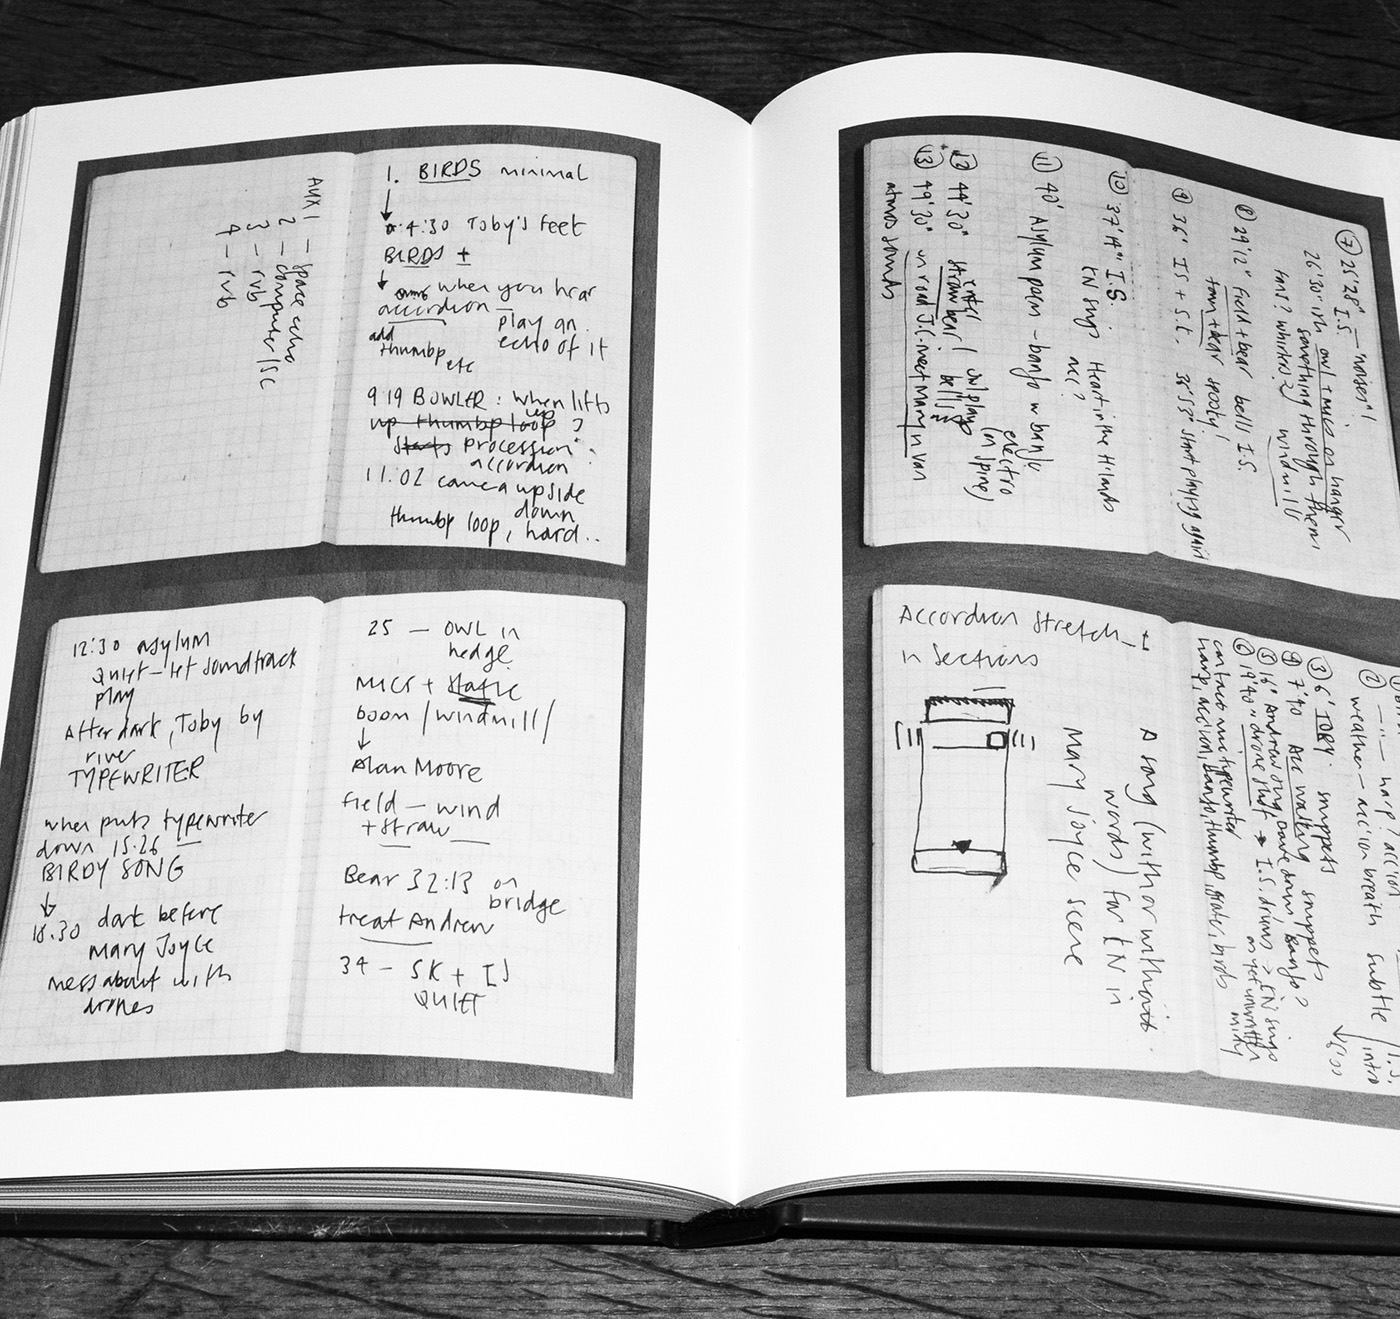 AUX 1 — space echo
2 — computer/SC
3 — rvb
4 — rvb
1. BIRDS minimal
4:30 Toby's feet
BIRDS +
when you hear
accordion — play an
echo of it
add
thumbp etc
9 19 BOWLER: when lifts
up thumbp loop up
starts procession
accordion
11:02 camera upside
down
thumbp loop, hard..
12:30 asylum
Quiet — let soundtrack
play
After dark, Toby by
river
TYPEWRITER
when puts typewriter
down 15.26
BIRDY SONG
18.30 dark before
Mary Joyce
mess about with
drones
25 — OWL in
hedge
MICS + static
boom/windmill/
Alan Moore
field — wind
+ straw
Bear 32:13 on
bridge
treat Andrew
34 — SK + IS
QUIET
⑦ 25'28" I.S. — "noises"!
26'30" owl + mics on hanger
something through them
fans? whirlies? windmill
⑧ 29'12" Field + bear bells I.S.
spooky!
⑨ 36" IS + S.C. 36'53" start playing again
⑩ 37'19" I.S.
KN sings Heart in the Hilands
acc?
⑪ 40' Asylum poem — banjo w banjo
electro
⑫ 44'30" straw bear bells
(in spine)
⑬ 49'30" on road J.C. meet Mary in van
sounds
Accordion stretch
in sections
A song (with or without
words) for KN in
Mary Joyce scene
② — " — harp/accion
weather — accion breath subtle
intro
③ 6' TOBY snippets
④ 7'40 Acc walking snippets
⑤ 16" Andrew song, banjo?
⑥ 19'40" drone shift → I.S. drums → KN sings
as yet unwritten
can face mic typewriter
harp, accion, banjo, thumbp, birds